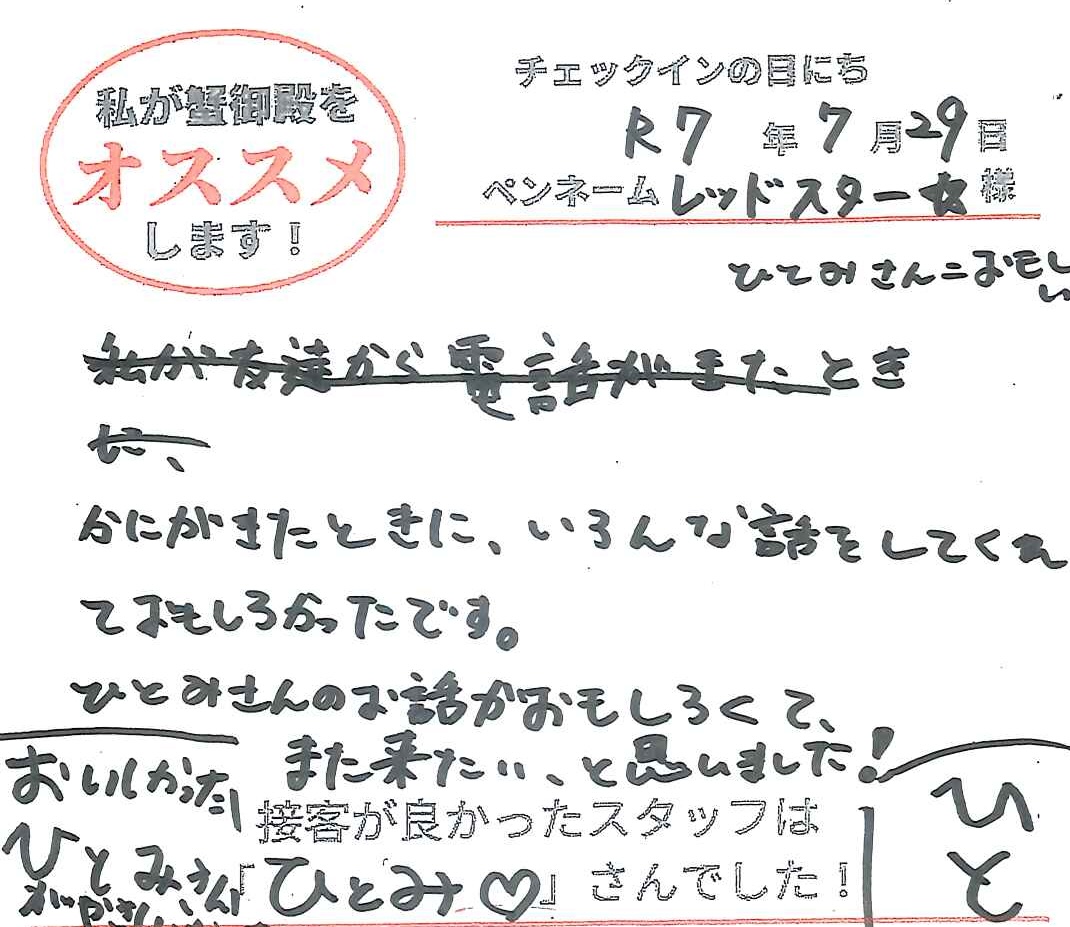 私が蟹御殿を
オススメ
します！
チェックインの日にち
R7年7月29日
ペンネーム レッドスター女 様
ひとみさん=おもし
い
私が友達から電話がきたとき
に、
かにがきたときに、いろんな話をしてくれ
ておもしろかったです。
ひとみさんのお話がおもしろくて、
また来たい、と思いました！
おいしかった
接客が良かったスタッフは
「ひとみ♡」さんでした！
ひとみさん
ひと